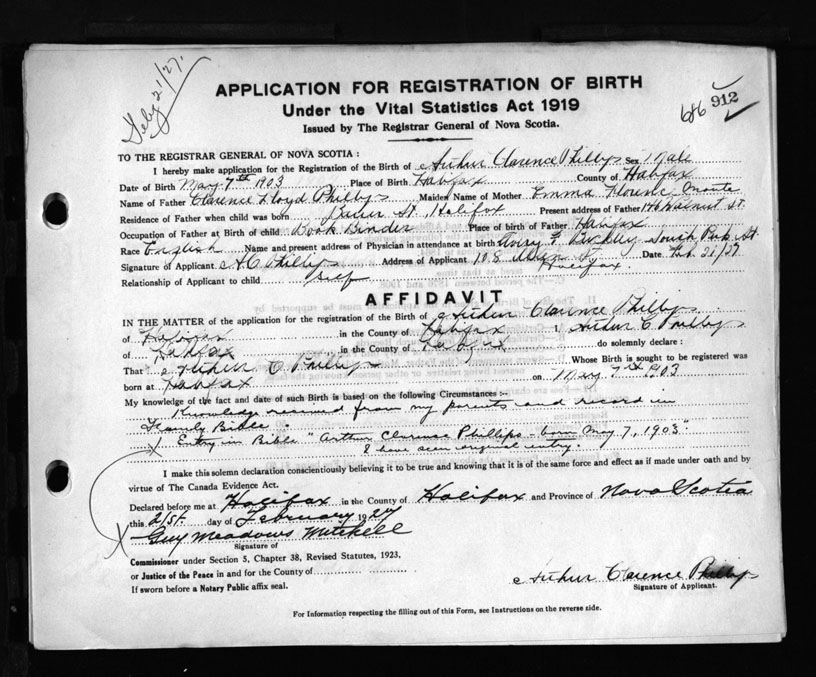 Feby 21/27.
APPLICATION FOR REGISTRATION OF BIRTH
Under the Vital Statistics Act 1919
Issued by The Registrar General of Nova Scotia.
686 912
TO THE REGISTRAR GENERAL OF NOVA SCOTIA :
I hereby make application for the Registration of the Birth of Arthur Clarence Phillips Sex Male
Date of Birth May 7th 1903 Place of Birth Halifax County of Halifax
Name of Father Clarence Lloyd Phillips Maiden Name of Mother Emma Florence
Residence of Father when child was born St. Halifax Present address of Father 146 Walnut St.
Occupation of Father at Birth of child Book Binder Place of birth of Father Halifax
Race English Name and present address of Physician in attendance at birth South Park St.
Signature of Applicant A C Phillips Address of Applicant 108 St Halifax. Date Feb. 21/27
Relationship of Applicant to child Self
AFFIDAVIT
IN THE MATTER of the application for the registration of Birth of Arthur Clarence Phillips
of Halifax in the County of Halifax I, Arthur C Phillips
of Halifax in the County of Halifax do solemnly declare :
That Arthur C Phillips Whose Birth is sought to be registered was
born at Halifax on May 7th 1903
My knowledge of the fact and date of such Birth is based on the following Circumstances :-
Knowledge received from my parents and record in
Family Bible.
Entry in Bible "Arthur Clarence Phillips - born May 7, 1903"
I have seen original entry.
I make this solemn declaration conscientiously believing it to be true and knowing that it is of the same force and effect as if made under oath and by
virtue of The Canada Evidence Act.
Declared before me at Halifax in the County of Halifax and Province of Nova Scotia
this 21st. day of February 1927
Guy Meadows Mitchell
Signature of
Commissioner under Section 5, Chapter 38, Revised Statutes, 1923,
or Justice of the Peace in and for the County of
If sworn before a Notary Public affix seal.
Arthur Clarence Phillips
Signature of Applicant.
For Information respecting the filling out of this Form, see Instructions on the reverse side.